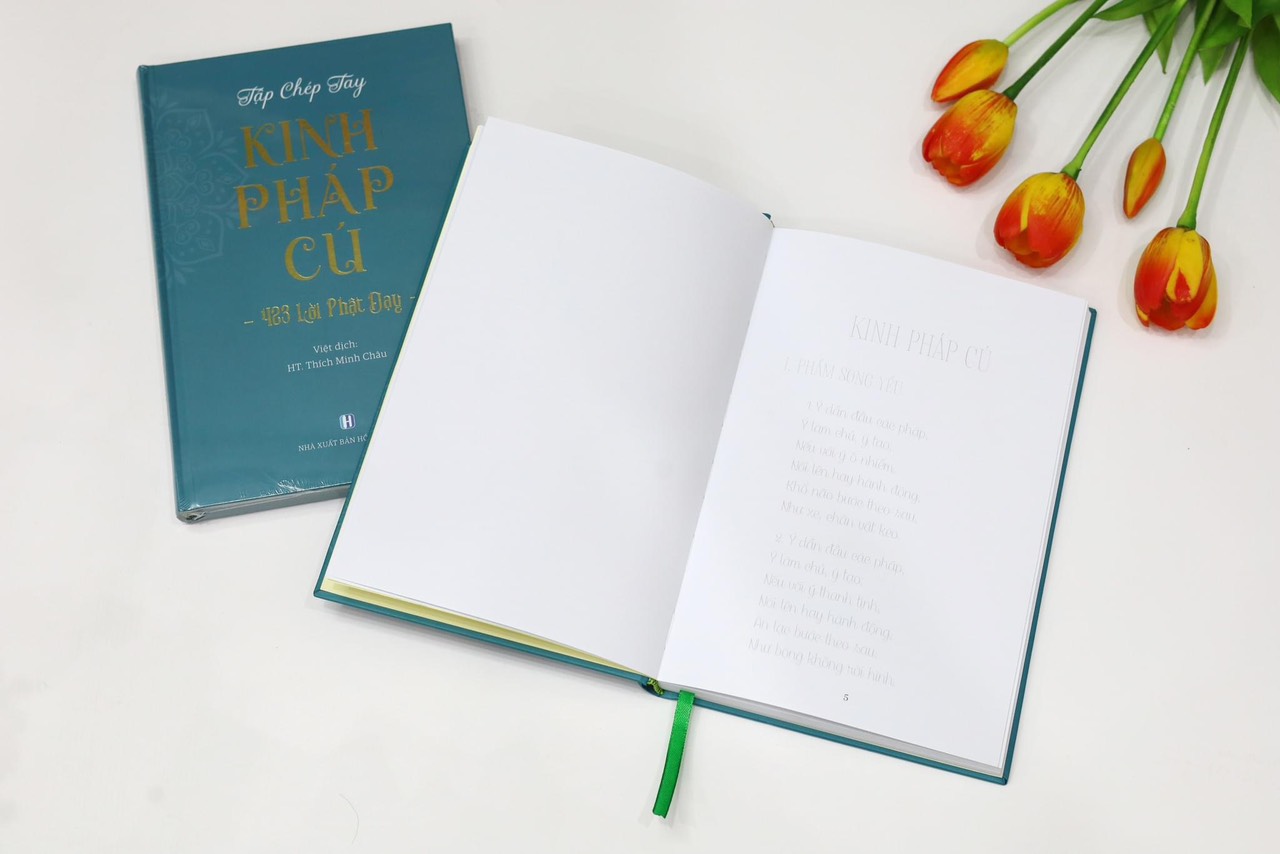 Tập Chép Tay
KINH
PHÁP
CÚ
- 423 Lời Phật Dạy -
Việt dịch:
HT. Thích Minh Châu
H
NHÀ XUẤT BẢN HỒ
KINH PHÁP CÚ
I. PHẨM SONG YẾU
1. Ý dẫn đầu các pháp,
Ý làm chủ, ý tạo,
Nếu với ý ô nhiễm,
Nói lên hay hành động,
Khổ não bước theo sau,
Như xe, chân vật kéo.
2. Ý dẫn đầu các pháp,
Ý làm chủ, ý tạo,
Nếu với ý thanh tịnh,
Nói lên hay hành động,
An lạc bước theo sau,
Như bóng không rời hình.
5